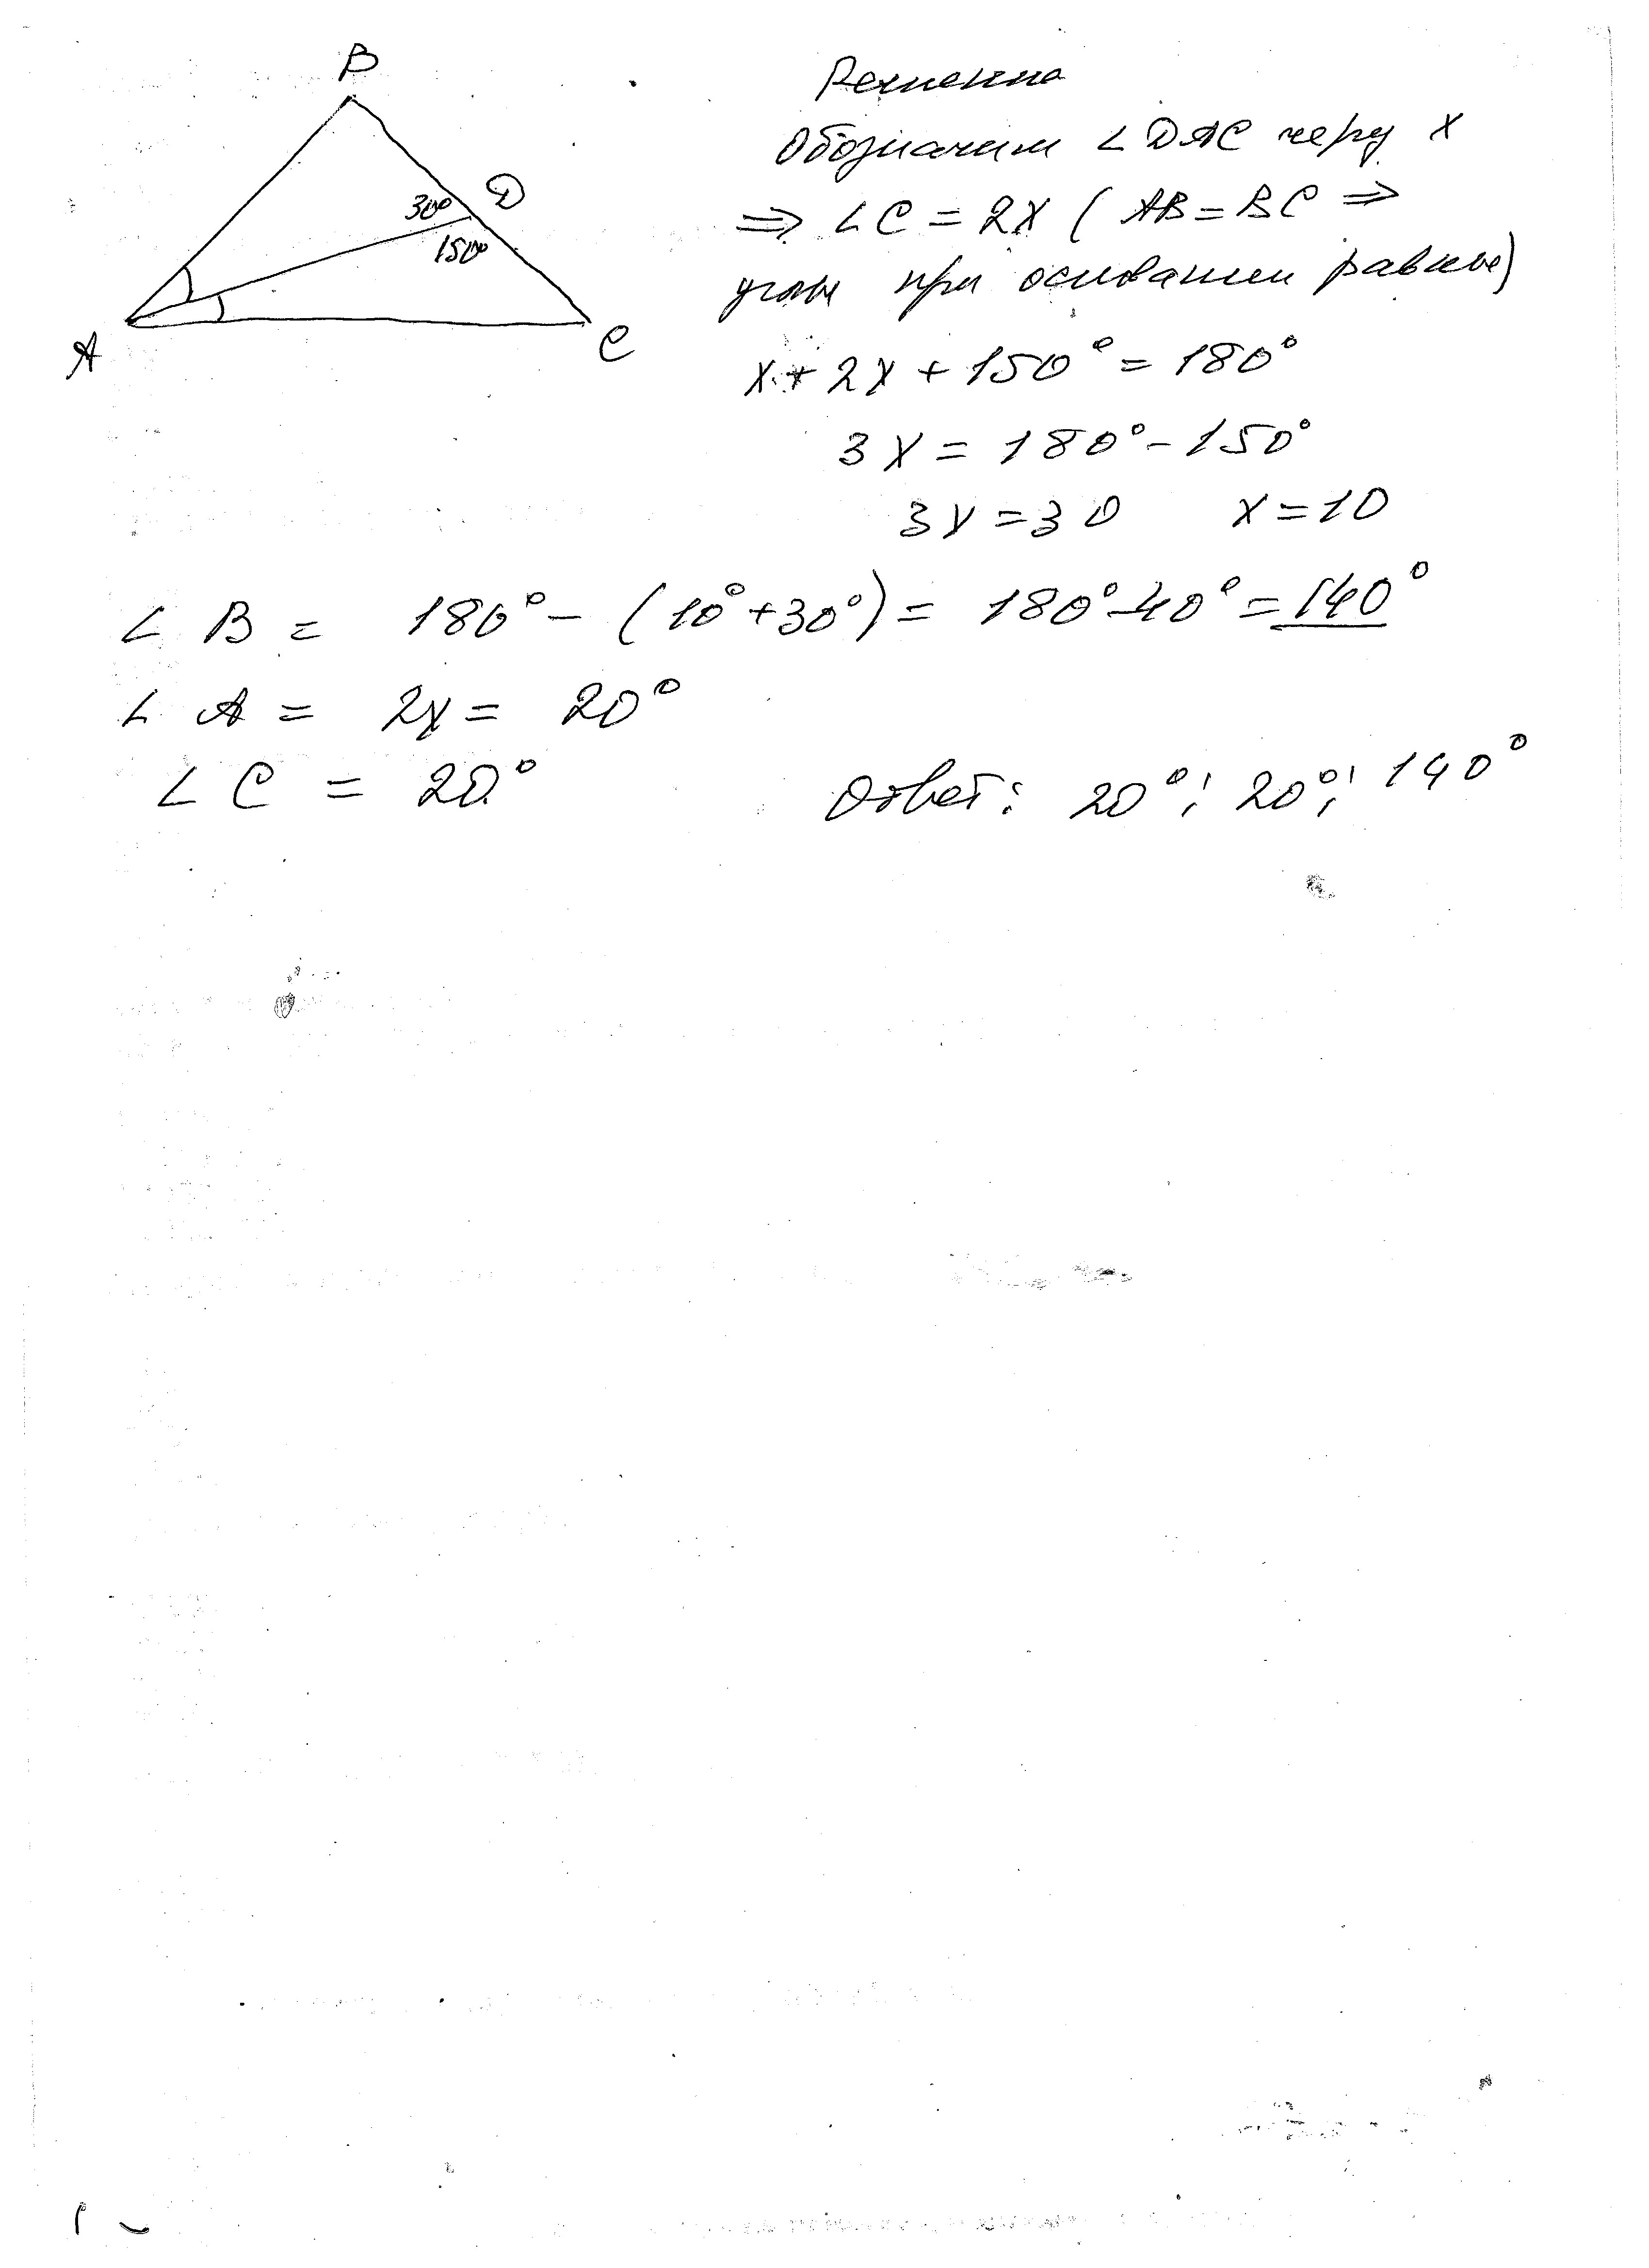 B
Решение
Обозначим ∠DAC через x
30° D
⇒ ∠C = 2x ( AB = BC ⇒
150°
углы при основании равны)
A C
x + 2x + 150° = 180°
3x = 180° - 150°
3x = 30 x = 10
∠ B = 180° - (10° + 30°) = 180° - 40° = 140°
∠ A = 2x = 20°
∠ C = 20°
Ответ: 20°; 20°; 140°